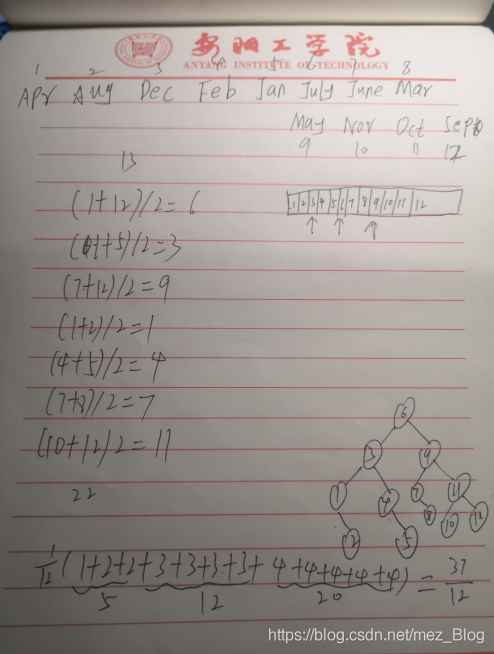 安阳工学院
ANYANG INSTITUTE OF TECHNOLOGY
1 2 3 4 5 6 7 8
Apr Aug Dec Feb Jan July June Mar
May Nov Oct Sept
9 10 11 12
13
(1+12)/2=6
1 2 3 4 5 6 7 8 9 10 11 12
(1+5)/2=3
(7+12)/2=9
(1+2)/2=1
(4+5)/2=4
(7+8)/2=7
(10+12)2=11
6
3 9
1 4 7 11
2 5 8 10 12
22
1/12 (1+2+2+3+3+3+3+4+4+4+4+4) = 37/12
5 12 20
https://blog.csdn.net/mez_Blog